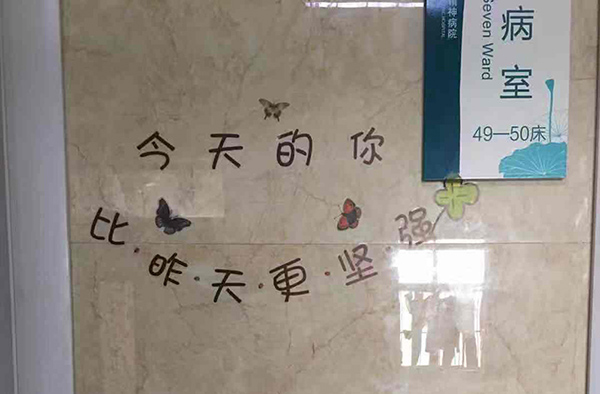 今天的你
比·昨·天·更·坚·强
精神病院
Seven Ward
病室
49—50床